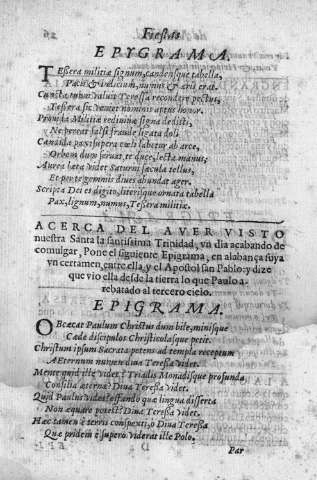 Fiestas
EPYGRAMA.
TEssera militiæ signum, candensque tabella,
Pacis & indicium, numus & æris erat.
Cuncta tuum valuit Teressa recondere pectus,
Tessera sic venit nominis aptus honor.
Provida Militiæ redimina signa dedisti,
Ne pereat falsi fraude ligata doli
Candida pax supera cæli labetur ab arce,
Orbem dum servat te duce, lecta manus;
Aurea læta videt Saturni sæcula tellus,
Et per te gemmis dives abundat ager.
Scripta Dei et digito, literisque ornata tabella
Pax, signum, numus, Tessera militiæ.
ACERCA DEL AVER VISTO
nuestra Santa la santissima Trinidad, vn dia acabando de
comulgar, Pone el siguiente Epigrama, en alabança suya
vn certamen, entre ella, y el Apostol san Pablo: y dize
que vio ella desde la tierra lo que Paulo a-
rebatado al tercero cielo.
EPIGRAMA.
OBcæcat Paulum Christus dum bile, minisque
Cæde discipulos Christicolasque petit.
Christum ipsum Sacrata petens ad templa receptum
AEternum numen diua Teressa videt.
Mente quid ille videt? Trialis Monadisque profunda
Consilia æterna? Diua Teressa videt.
Quid Paulus videat? effando quæ lingua disserta
Non æquare potest? Diua Teressa videt.
Hæc tamen è terris conspexti, o Diua Teressa
Quæ pridem è supero viderat ille Polo.
Par